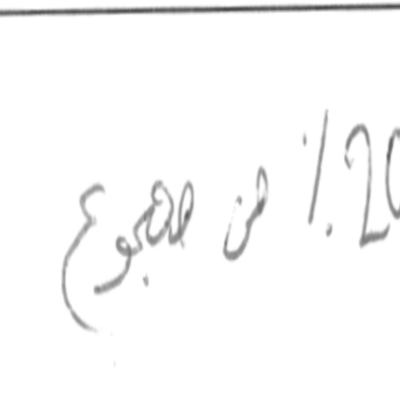 20٪ من المجموع